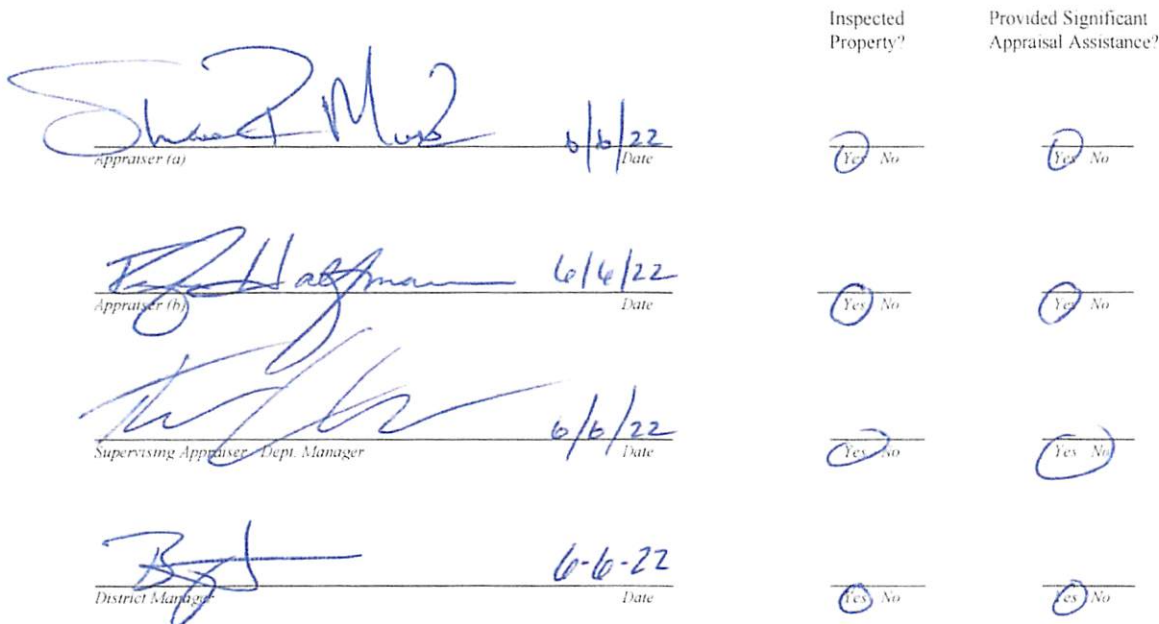 Inspected Provided Significant
Property? Appraisal Assistance?
6/6/22
Appraiser (a) Date Yes No Yes No
Halfmann 6/6/22
Appraiser (b) Date Yes No Yes No
6/6/22
Supervising Appraiser Dept. Manager Date Yes No Yes No
6-6-22
District Manager Date Yes No Yes No